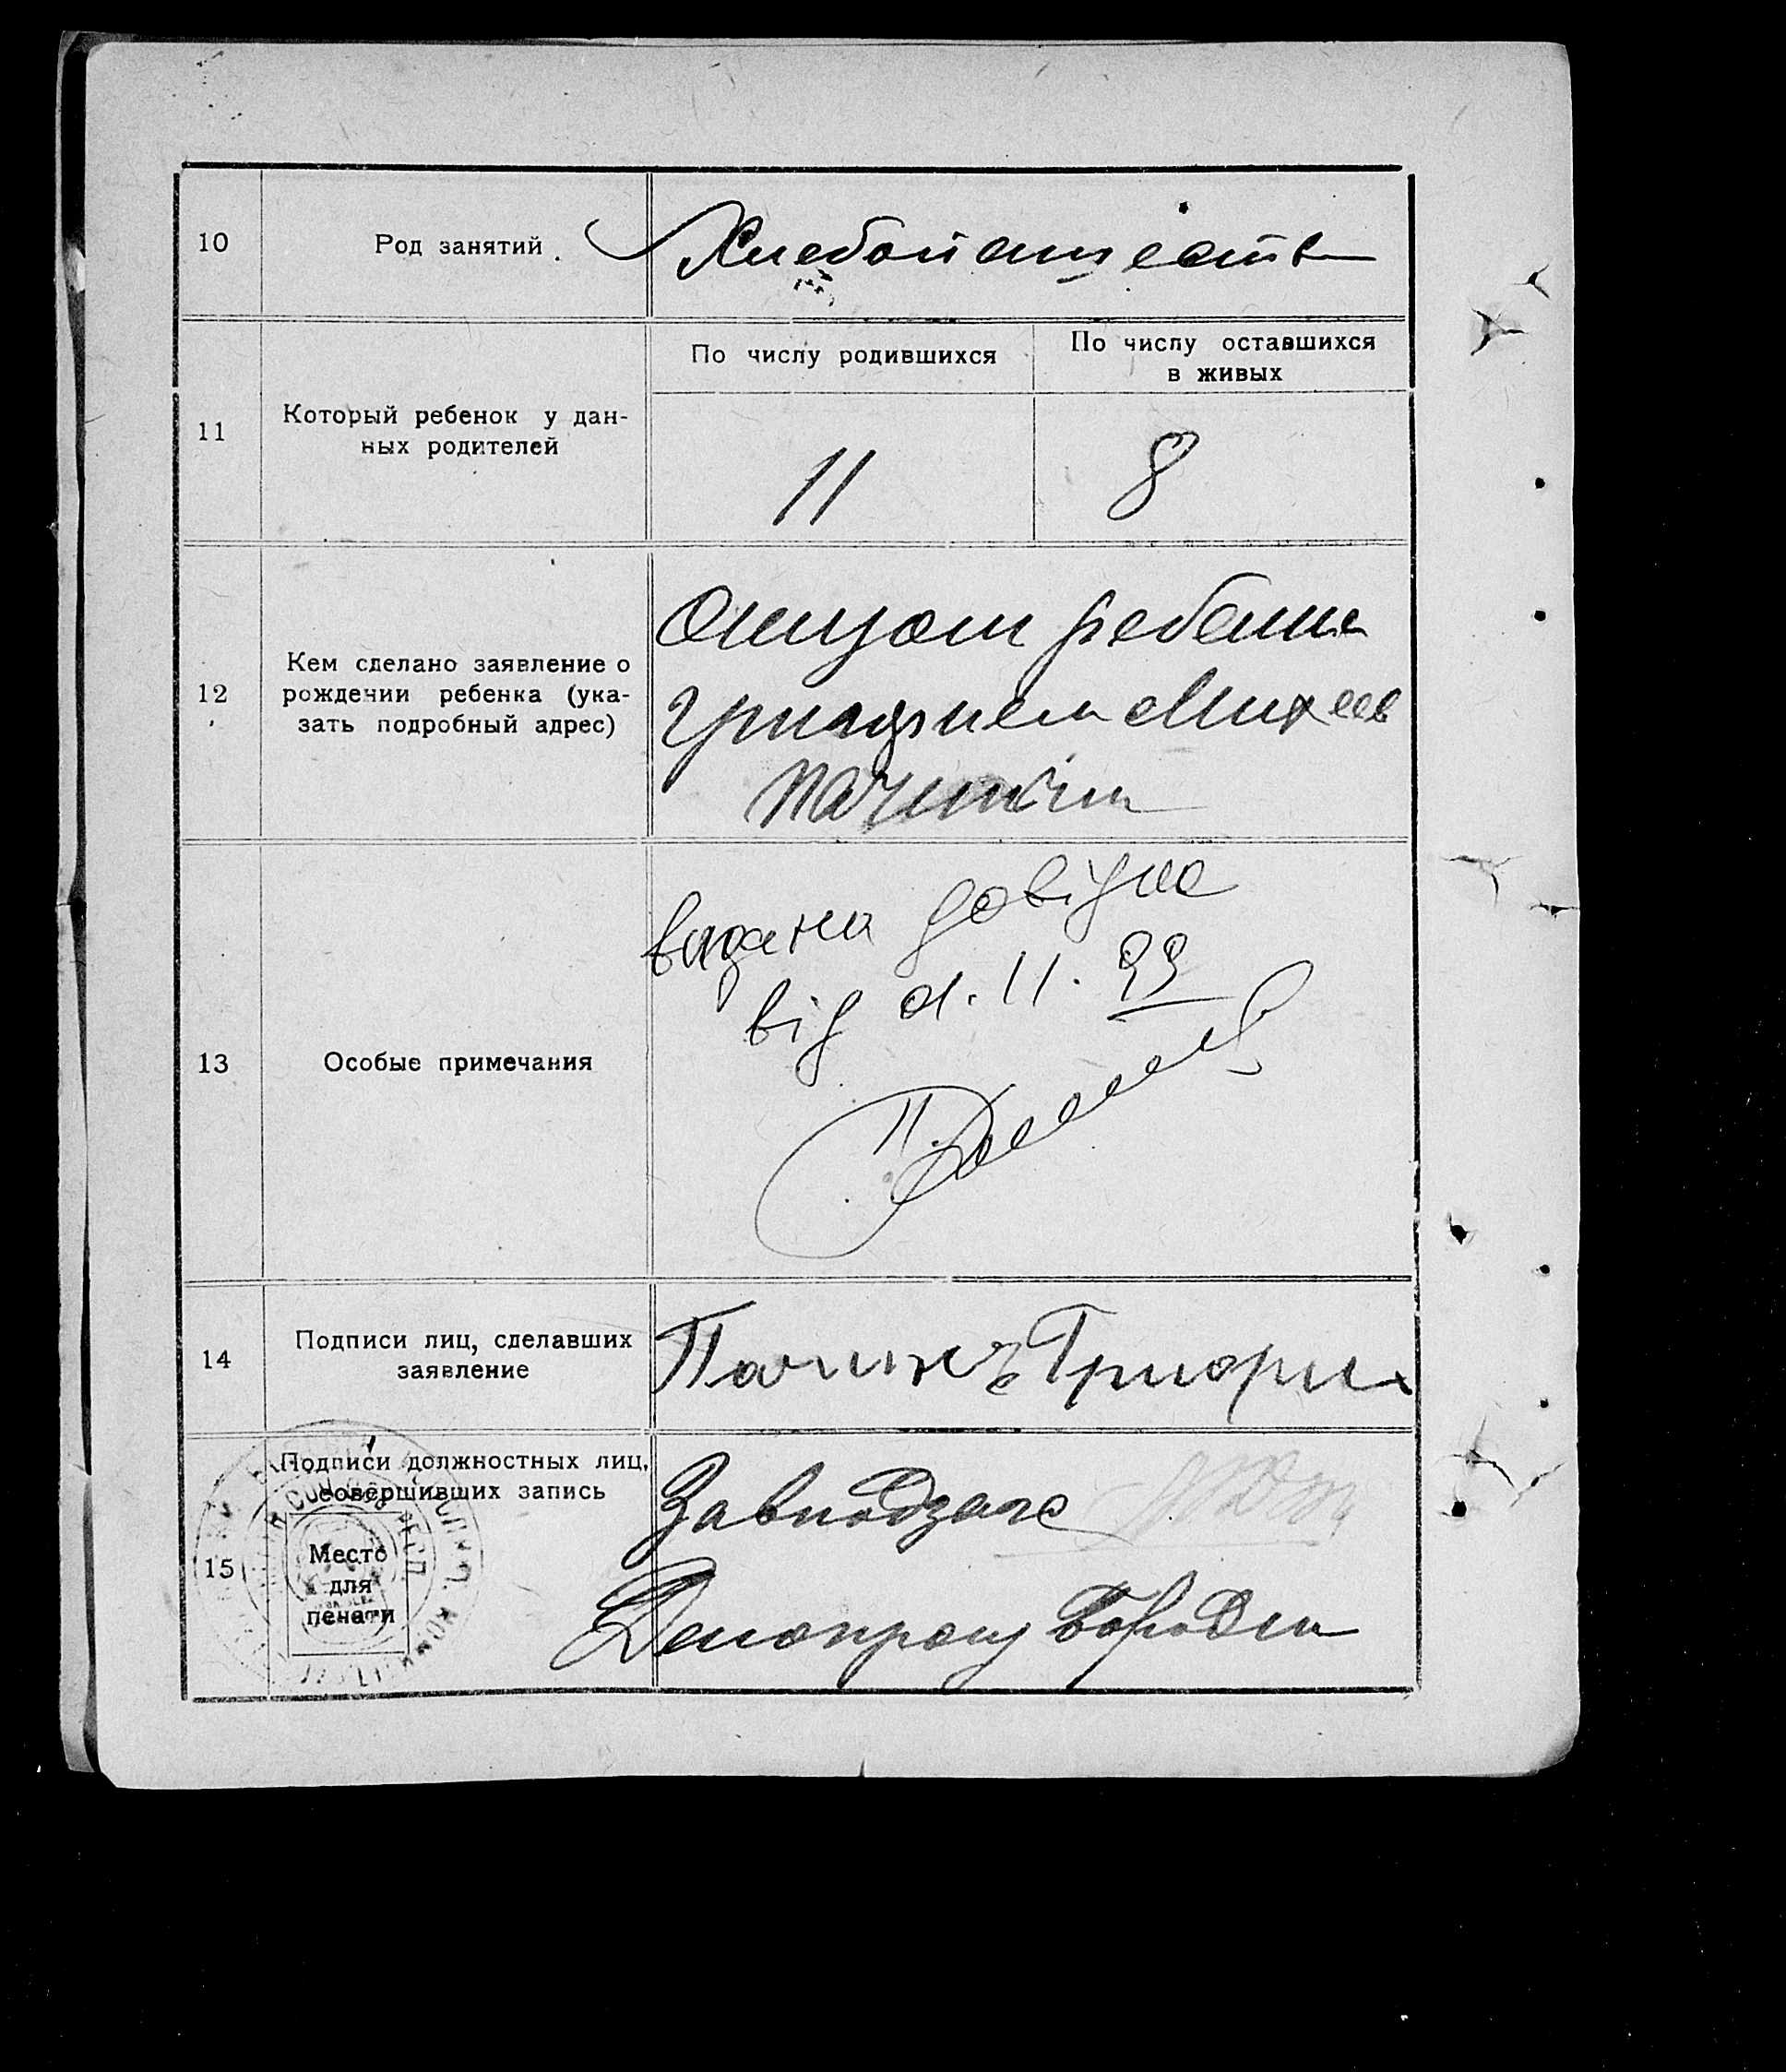 10
Род занятий
Хлебопашество
11
Который ребенок у дан-
ных родителей
По числу родившихся
По числу оставшихся
в живых
11
8
12
Кем сделано заявление о
рождении ребенка (ука-
зать подробный адрес)
Отцом ребенка
Михеев
13
Особые примечания
видана довідка
від
14
Подписи лиц, сделавших
заявление
15
Подписи должностных лиц,
совершивших запись
Место
для
печати
Завподзагс
Делопроиз